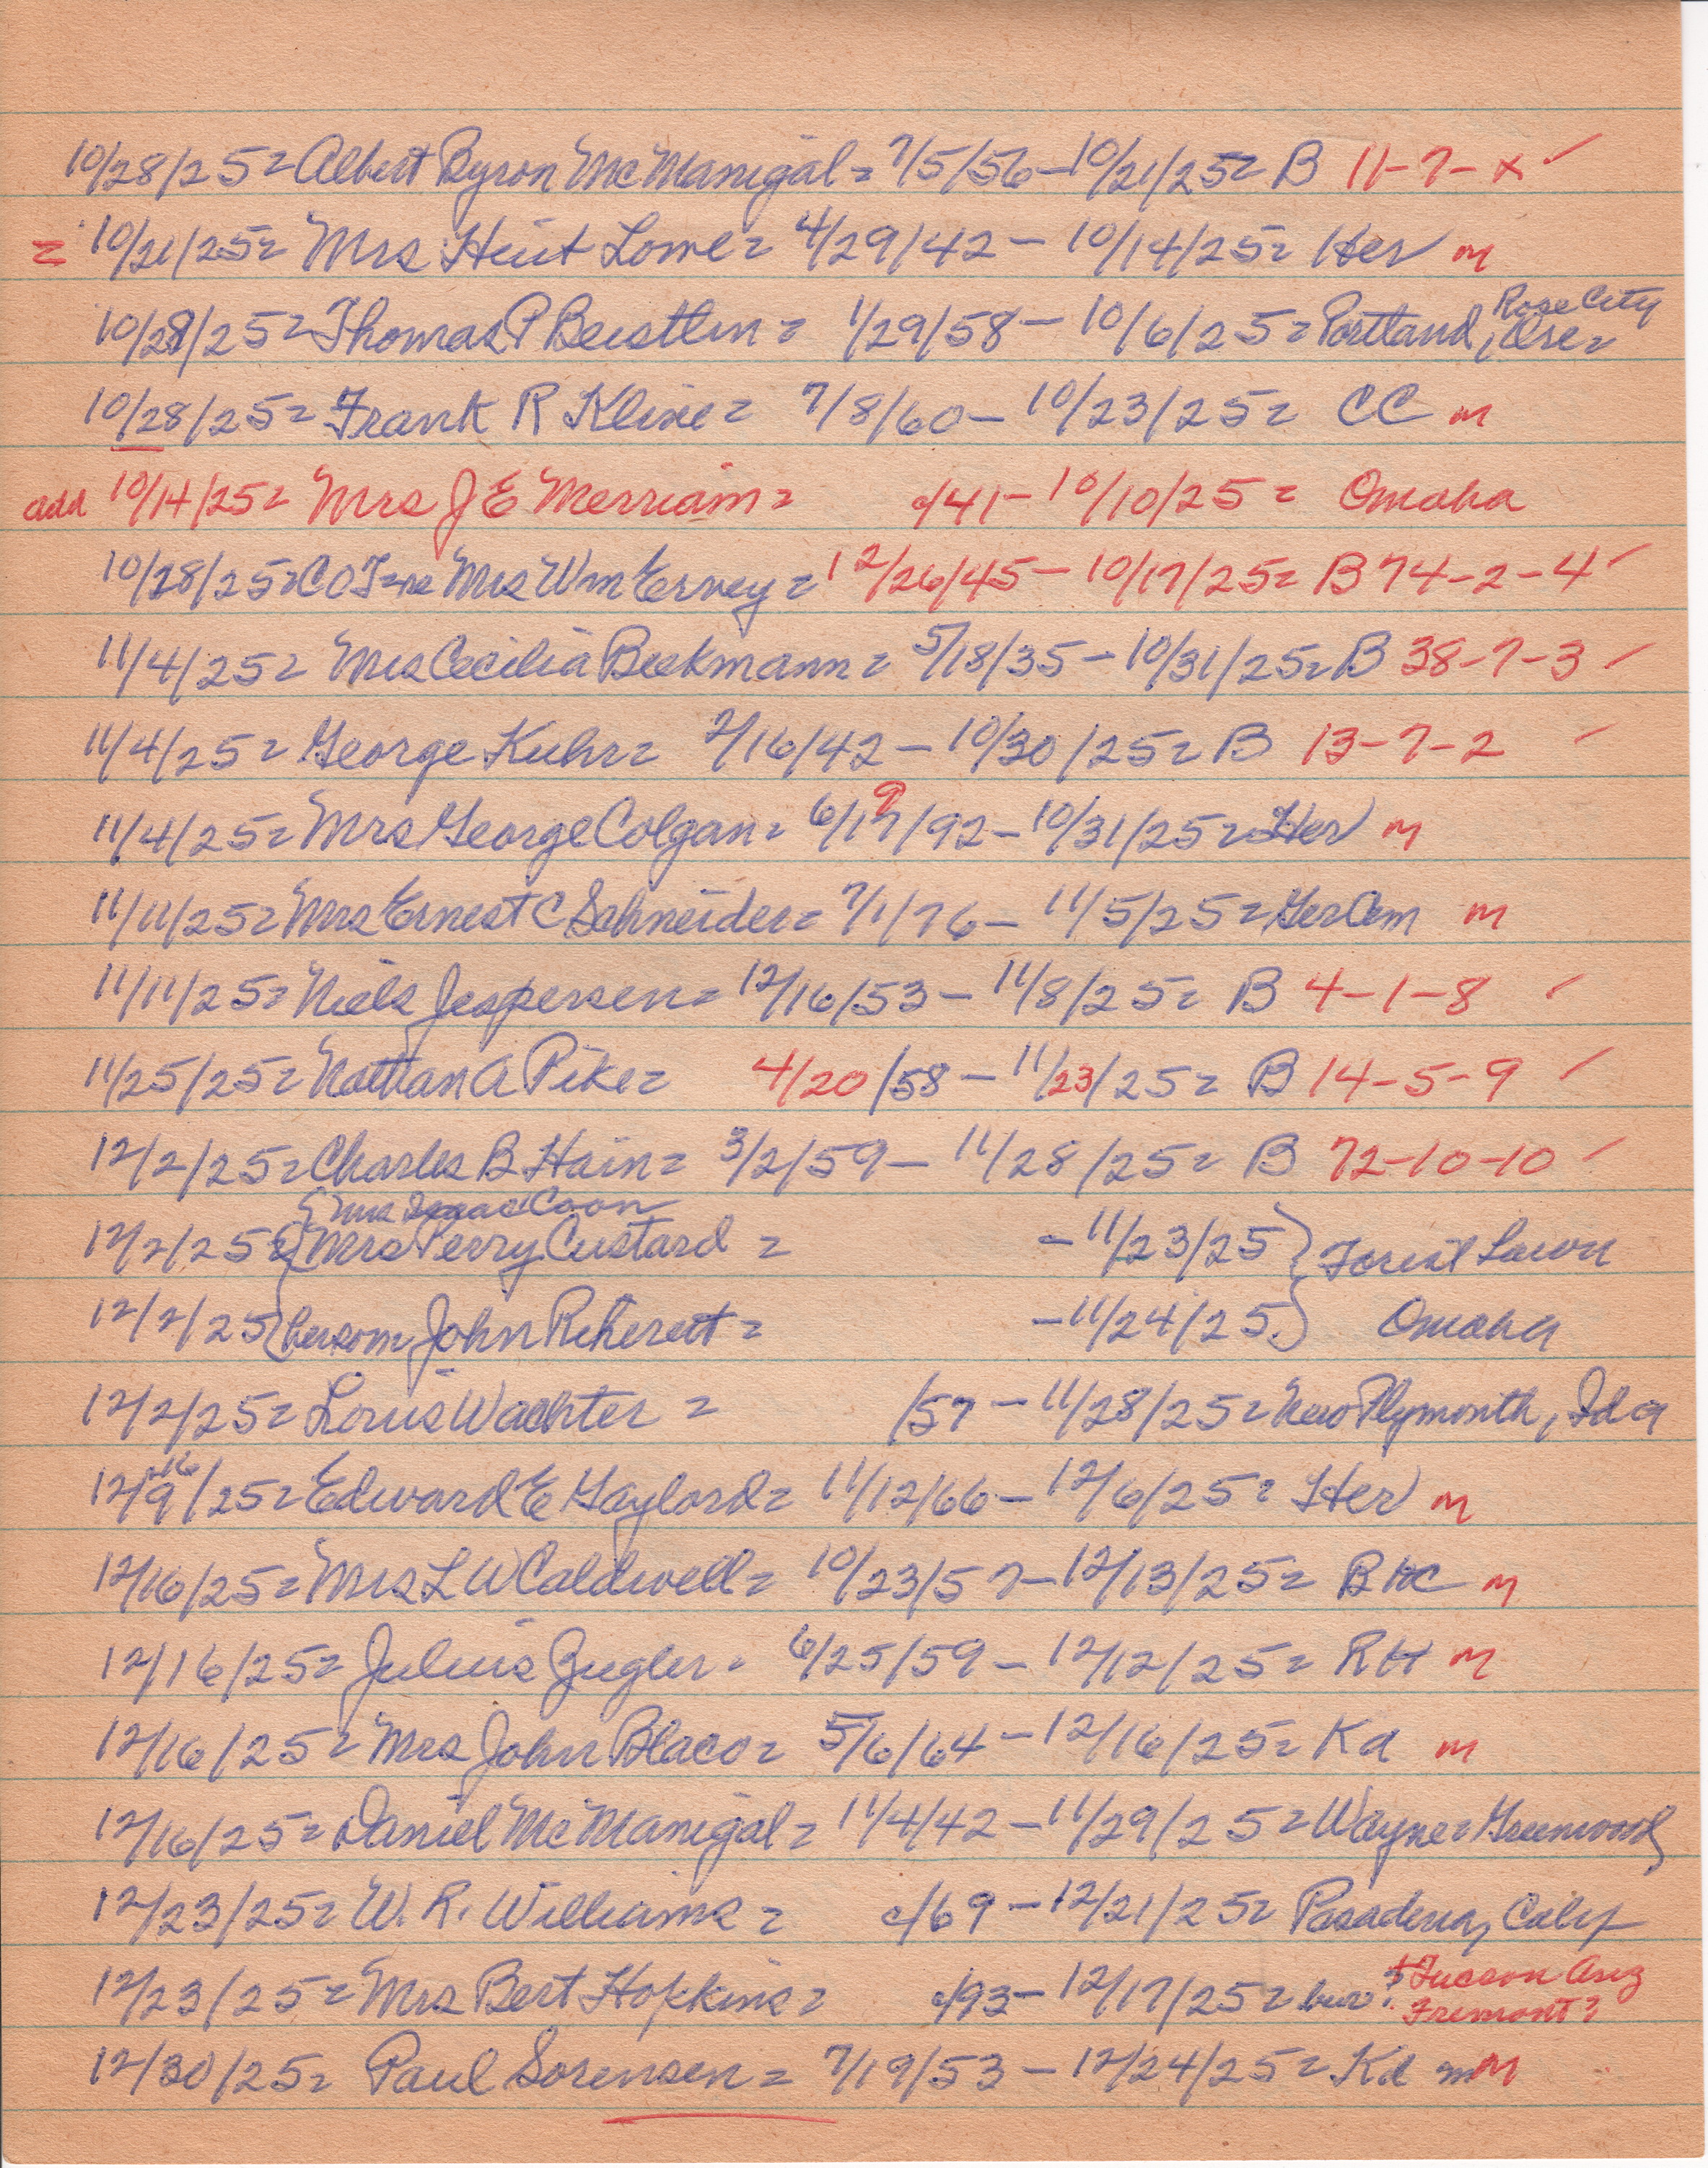 10/28/25= Albert Byron McManigal = 7/5/56 - 10/21/25= B 11-7-x ✓
= 10/21/25= Mrs Hint Lowe = 4/29/42 - 10/14/25= Her m
10/28/25= Thomas P Beistlin = 1/29/58 - 10/6/25= Portland, Rose City Ore =
10/28/25= Frank R Kline = 7/8/60 - 10/23/25= CC m
add 10/14/25= Mrs J E Merriam = c/41 - 10/10/25= Omaha
10/28/25= Mrs Wm Ervey = 12/26/45 - 10/17/25= B 74-2-4 ✓
11/4/25= Mrs Cecilia Beekmann = 5/18/35 - 10/31/25= B 38-7-3 ✓
11/4/25= George Kuhr = 2/16/42 - 10/30/25= B 13-7-2 ✓
11/4/25= Mrs George Colgan = 6/17/92 - 10/31/25= Her m
9
11/11/25= Mrs Ernest C Schneider = 7/1/76 - 11/5/25= Ger Cem m
11/11/25= Niels Jespersen = 12/16/53 - 11/8/25= B 4-1-8 ✓
11/25/25= Nathan A Pike = 4/20/58 - 11/23/25= B 14-5-9 ✓
12/2/25= Charles B Hain = 3/2/59 - 11/28/25= B 72-10-10 ✓
{ Mrs Isaac Coon
12/2/25= { Mrs Perry Custard = - 11/23/25 } Forest Lawn
12/2/25 { her son John Rikerett = - 11/24/25 } Omaha
12/2/25= Louis Wachter = /57 - 11/28/25= New Plymouth, Ida
16
12/9/25= Edward E Gaylord = 11/12/66 - 12/6/25= Her m
12/16/25= Mrs L W Caldwell = 10/23/57 - 12/13/25= B HC m
12/16/25= Julius Zugler = 6/25/59 - 12/12/25= RH m
12/16/25= Mrs John Blaco = 5/6/64 - 12/16/25= Kd m
12/16/25= Daniel McManigal = 11/4/42 - 11/29/25= Wayne = Greenwood
12/23/25= W. R. Williams = c/69 - 12/21/25= Pasadena, Calif
12/23/25= Mrs Bert Hopkins = c/93 - 12/17/25= bur? + Tucson Ariz
Fremont?
12/30/25= Paul Sorensen = 7/19/53 - 12/24/25= Kd m m